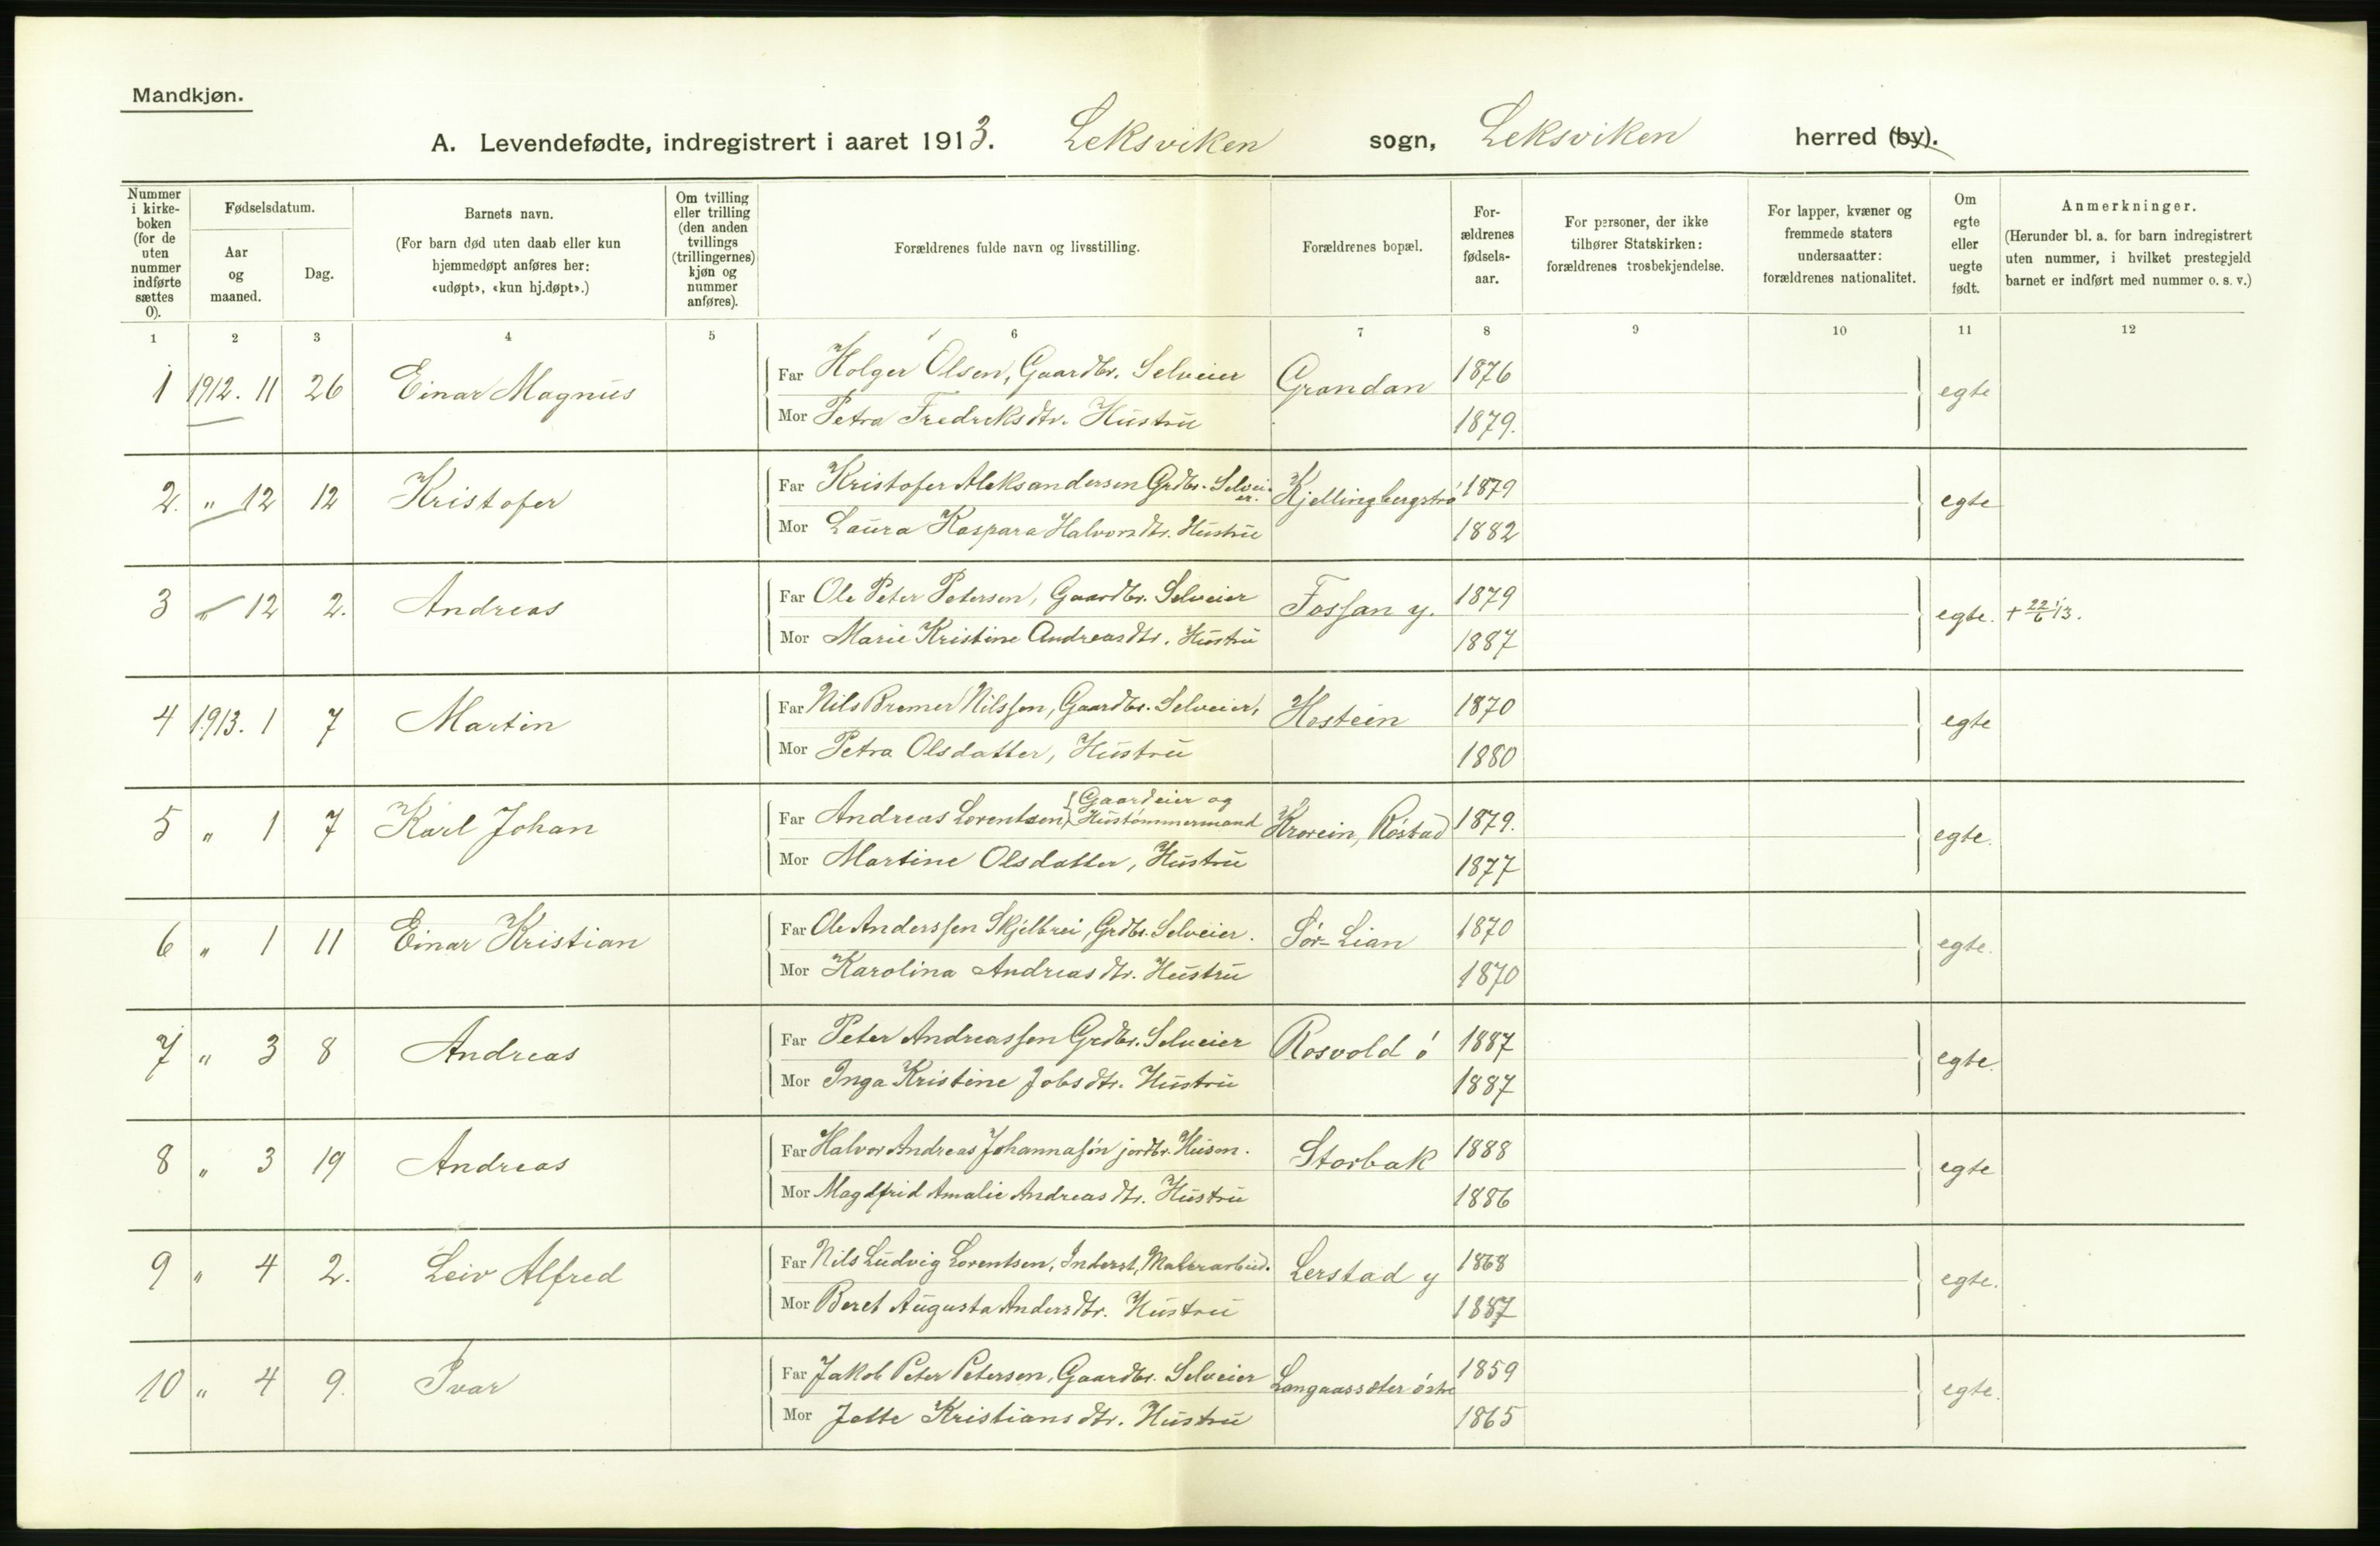 Mandkjøn.
A. Levendefødte, indregistrert i aaret 1913. Leksviken sogn, Leksviken herred (by).
Nummer i kirke-boken (for de uten nummer indførte sættes 0).
Fødselsdatum.
Aar og maaned.
Dag.
Barnets navn.
(For barn død uten daab eller kun hjemmedøpt anføres her: «udøpt», «kun hj.døpt».)
Om tvilling eller trilling (den anden tvillings (trillingernes) kjøn og nummer anføres).
Forældrenes fulde navn og livsstilling.
Forældrenes bopæl.
For-ældrenes fødsels-aar.
For personer, der ikke tilhører Statskirken: forældrenes trosbekjendelse.
For lapper, kvæner og fremmede staters undersaatter: forældrenes nationalitet.
Om egte eller uegte født.
Anmerkninger.
(Herunder bl. a. for barn indregistrert uten nummer, i hvilket prestegjeld barnet er indført med nummer o. s. v.)
1 2 3 4 5 6 7 8 9 10 11 12
1 1912. 11 26 Einar Magnus Far Holger Olsen, Gaardbr. Selveier Grandan 1876 egte
Mor Petra Fredriksdtr. Hustru 1879.
2. " 12 12 Kristofer Far Kristofer Aleksandersen Grdbr. Selveier. Kjellingbergstrø 1879 egte
Mor Laura Kaspara Halvorsdtr. Hustru 1882
3 " 12 2. Andreas Far Ole Peter Petersen, Gaardbr. Selveier Fossan y. 1879 egte. + 22/6 13.
Mor Marie Kristine Andreasdtr. Hustru 1887
4 1913. 1 7 Martin Far Nils Bremer Nilssen, Gaardbr. Selveier, Hostein 1870 egte
Mor Petra Olsdatter, Hustru 1880
5 " 1 7 Karl Johan Far Andreas Lorentsen, Gaardeier og Hustømmermand Krovein, Røstad 1879. egte.
Mor Martine Olsdatter, Hustru 1877
6 " 1 11 Einar Kristian Far Ole Anderssen Skjelbrei, Grdbr. Selveier. Sør-Lian 1870 egte.
Mor Karolina Andreasdtr. Hustru 1870
7 " 3 8 Andreas Far Peter Andreassen Grdbr. Selveier Rosvold ø 1887 egte.
Mor Inga Kristine Jobsdtr. Hustru 1887
8 " 3 19 Andreas Far Halvor Andreas Johannasøn jordbr. Husm. Storbak 1888 egte
Mor Magdfrid Amalie Andreasdtr. Hustru 1886
9 " 4 2. Leiv Alfred Far Nils Ludvig Lorentsen, Inderst, Malerarbeid. Lerstad y 1868 egte.
Mor Beret Augusta Andersdtr. Hustru 1887
10 " 4 9. Ivar Far Jakob Peter Petersen, Gaardbr. Selveier Langaassæter østre 1859 egte.
Mor Jette Kristiansdtr. Hustru 1865